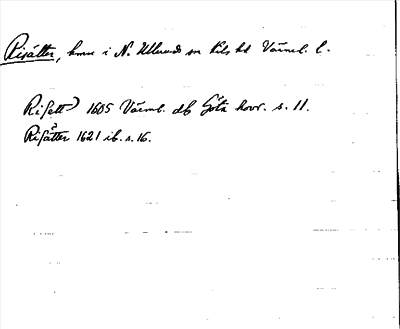 Risätter, hmn i N. Ullerud sn Kils hd Värml. l.
Risett 1605 Värml. Jb Göta kovr. s. 11.
Risätter 1621 ib. s. 16.